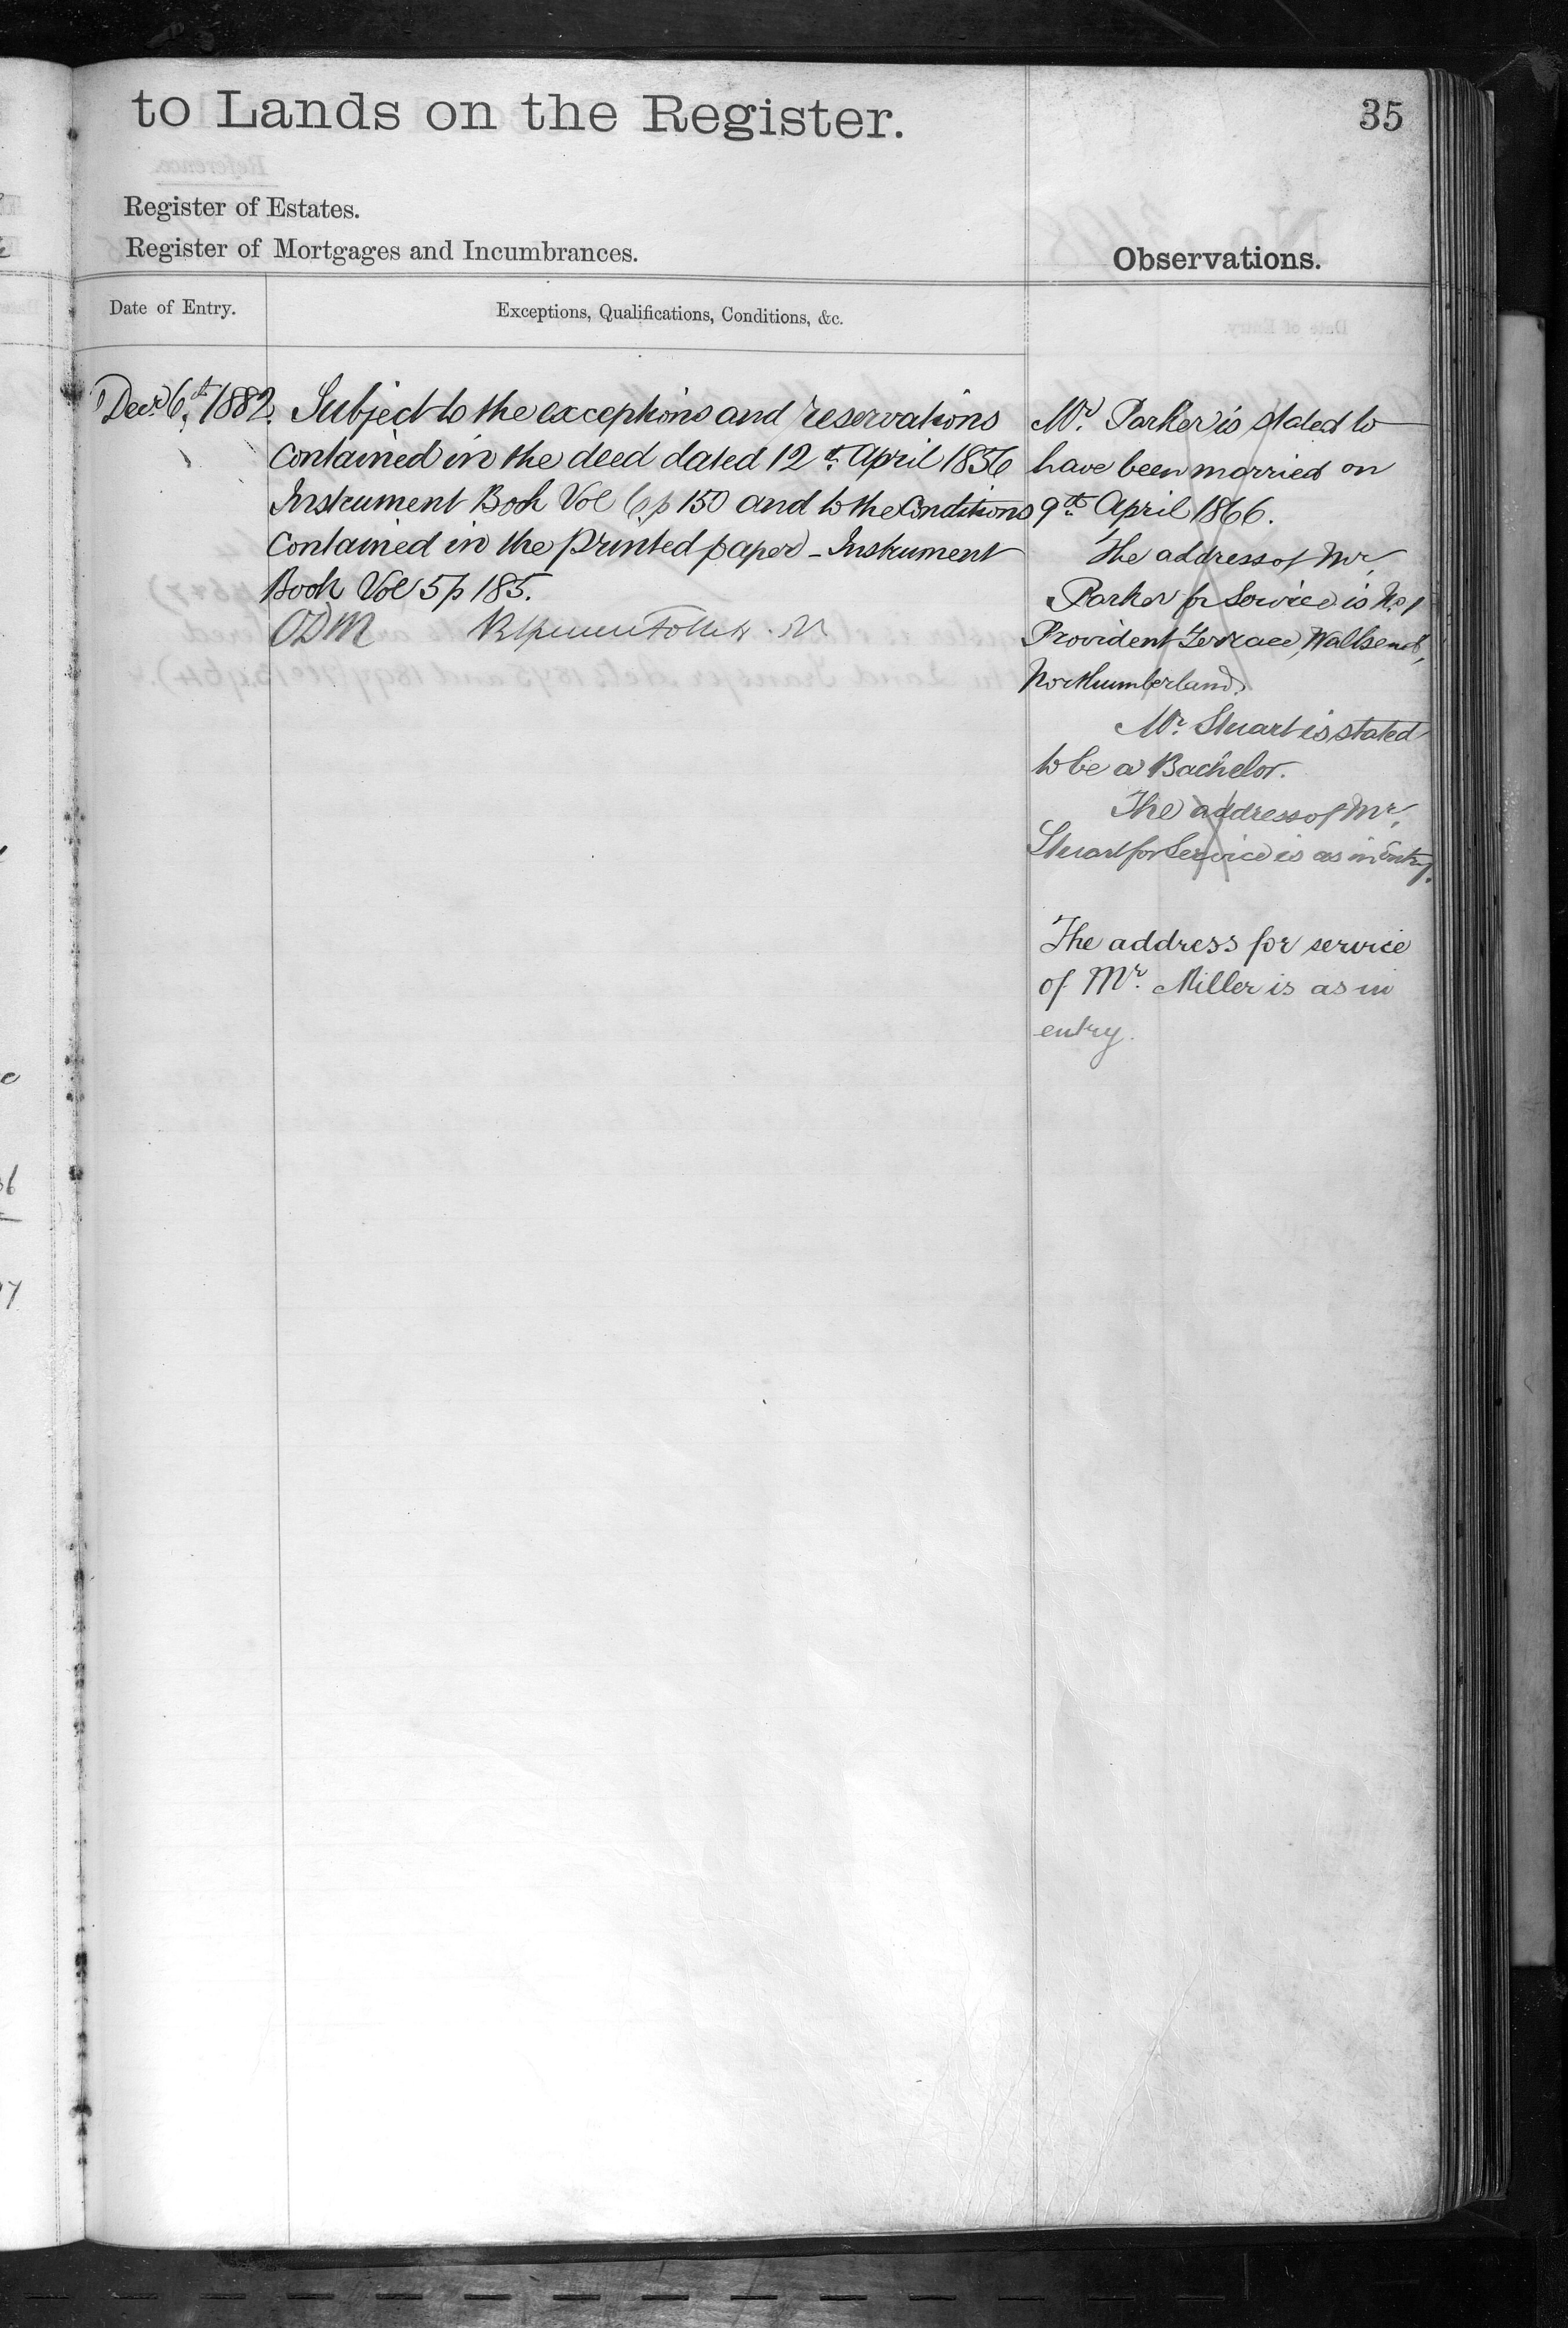 to Lands on the Register.
35
Register of Estates.
Register of Mortgages and Incumbrances.
Observations.
Date of Entry.
Exceptions, Qualifications, Conditions, &c.
Decr. 6th. 1882.
Subject to the exceptions and reservations
contained in the deed dated 12th. April 1856
Instrument Book Vol 6 p 150 and to the Conditions
contained in the printed paper - Instrument
Book Vol 5 p 185.
ODM
Mr. Parker is stated to
have been married on
9th. April 1866.
The address of Mr.
Parker for Service is No. 1
Provident Terrace, Wallsend,
Northumberland.
Mr. Stuart is stated
to be a Bachelor.
The address of Mr.
Stuart for Service is as in Entry.
The address for service
of Mr. Miller is as in
entry.